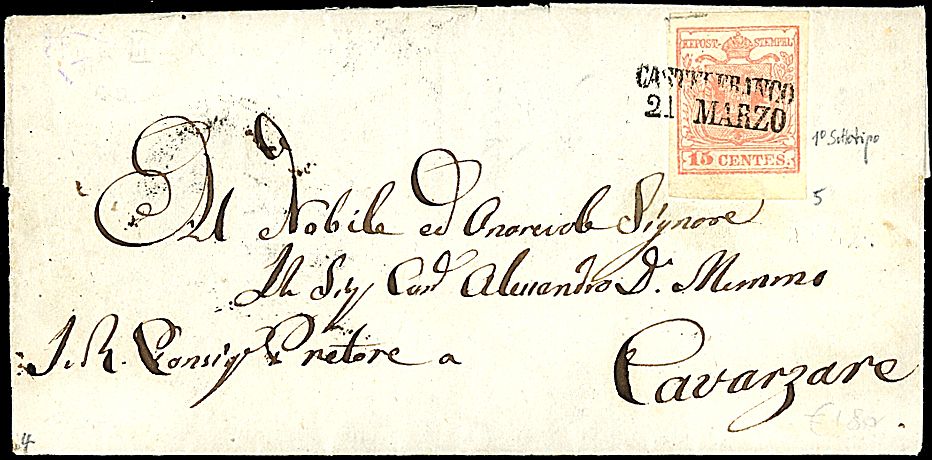 KKPOST-STEMPEL
CASTELFRANCO
21 MARZO
15 CENTES.
1° Sottotipo
5
Al Nobile ed Onorevole Signore
Il Sig. Cav. Alessandro Dr. Memmo
I. R. Consigr Pretore a
Cavarzare